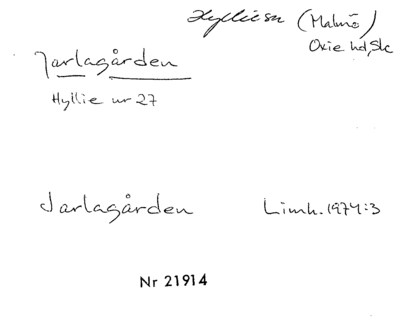 Hyllie sn (Malmö)
Oxie hd, Sk
Jarlagården
Hyllie nr 27
Jarlagården Limh. 1974:3
Nr 21914